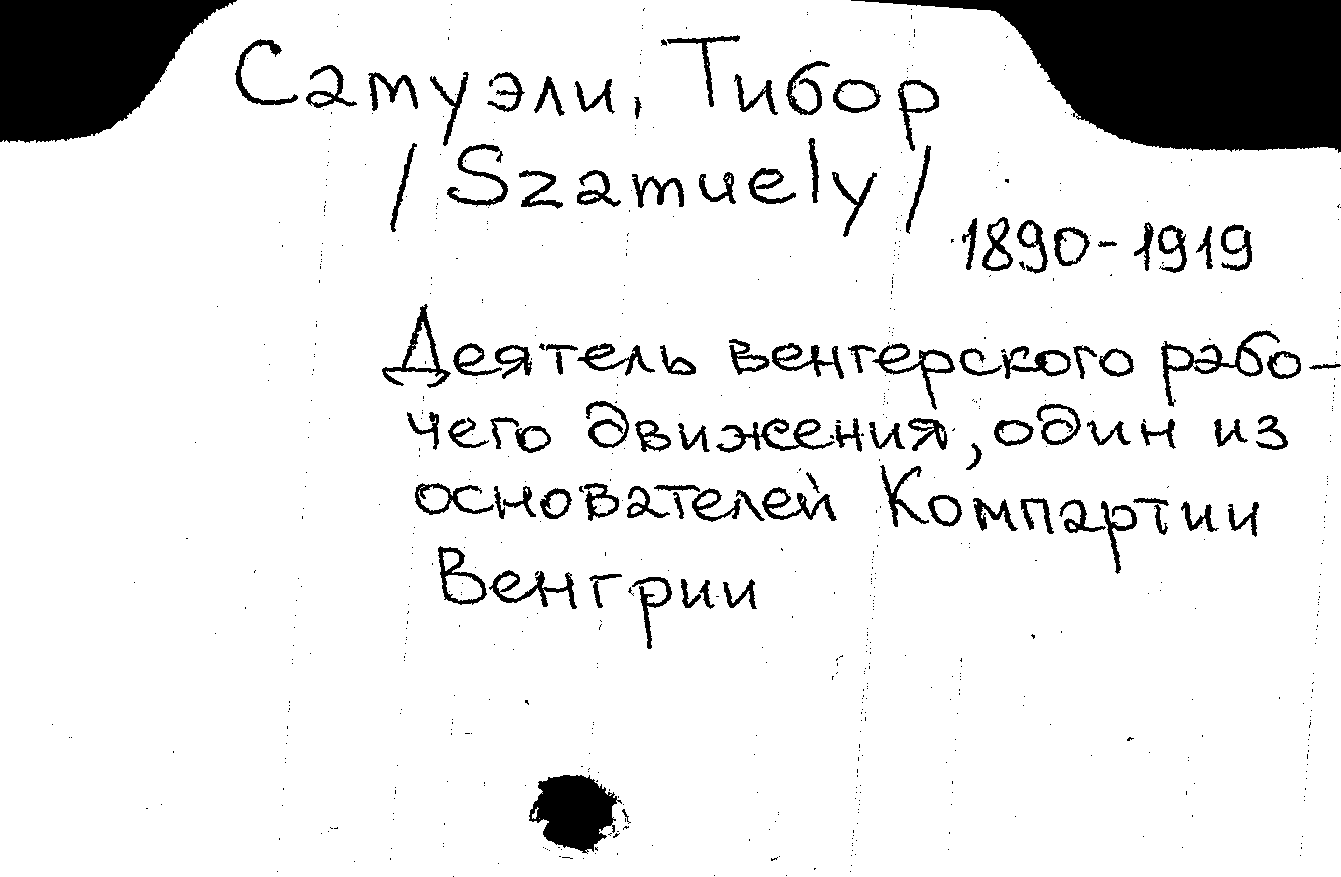 Самуэли, Тибор
/Szamuely/
1890-1919
Деятель венгерского рабо-
чего движения, один из
основателей Компартии
Венгрии